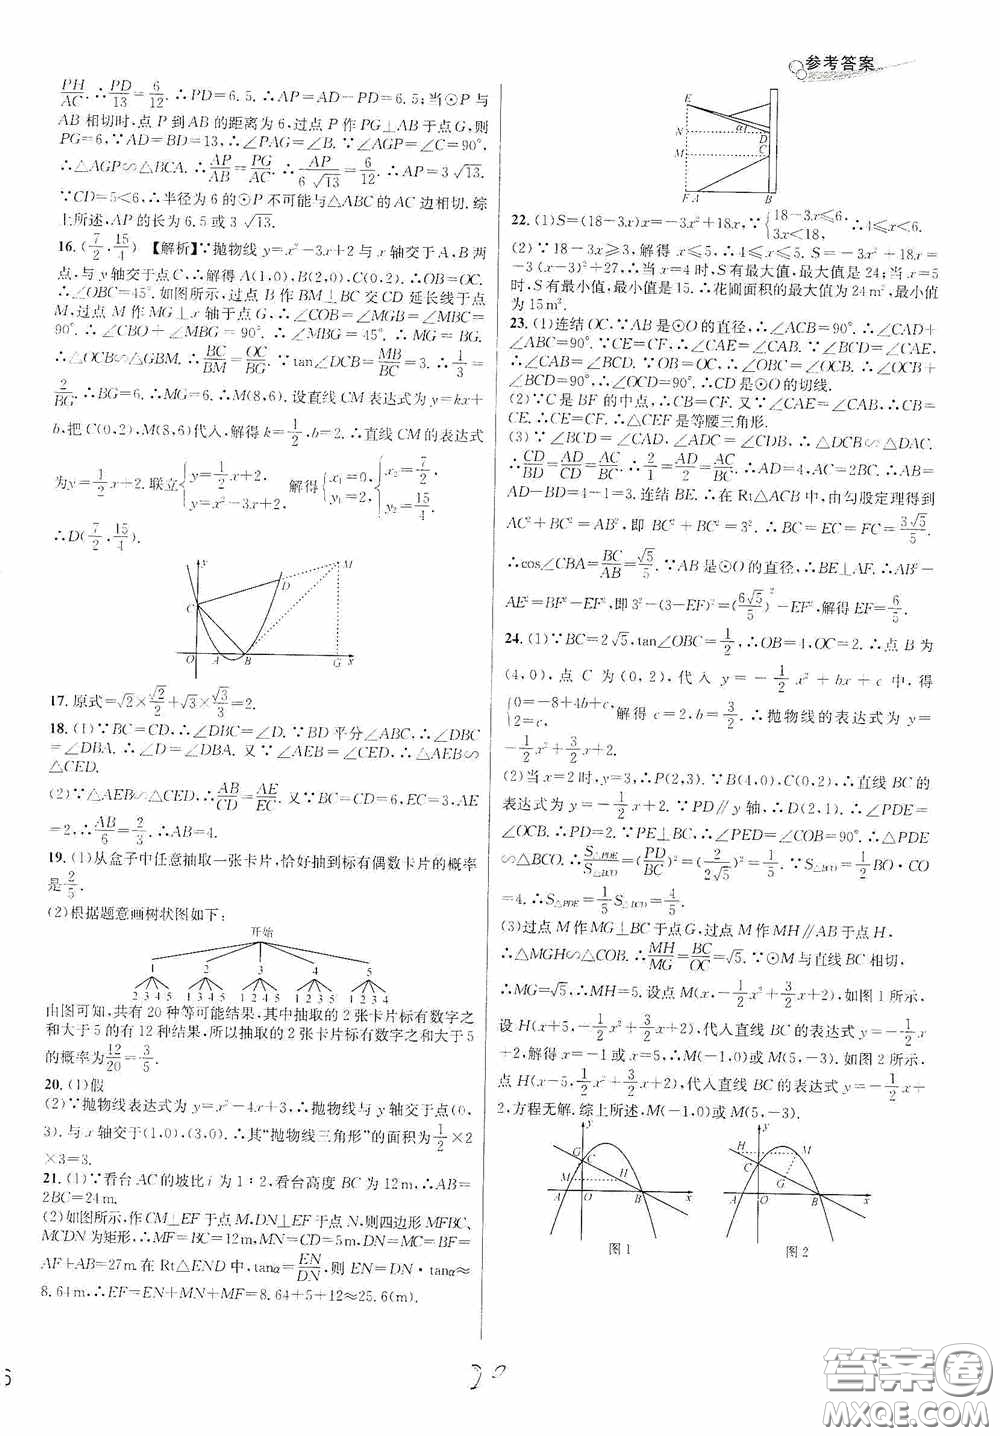 参考答案
PH/AC. ∴PD/13=6/12. ∴PD=6.5. ∴AP=AD-PD=6.5;当⊙P与
AB 相切时,点P到AB的距离为6,过点P作PG⊥AB于点G,则
PG=6. ∵AD=BD=13,∴∠PAG=∠B. ∵∠AGP=∠C=90°,
∴△AGP∽△BCA. ∴AP/AB=PG/AC. ∴AP/6√13=6/12. ∴AP=3√13.
∵CD=5<6,∴半径为6的⊙P不可能与△ABC的AC边相切.综
上所述,AP的长为6.5或3√13.
16. (7/2, 15/4) 【解析】∵抛物线y=x²-3x+2与x轴交于A、B两
点,与y轴交于点C,∴解得A(1,0),B(2,0),C(0,2). ∴OB=OC.
∴∠OBC=45°. 如图所示,过点B作BM⊥BC交CD延长线于点
M,过点M作MG⊥x轴于点G,∴∠COB=∠MGB=∠MBC=
90°. ∴∠CBO+∠MBG=90°. ∴∠MBG=45°. ∴MG=BG.
∴△OCB∽△GBM. ∴BC/BM=OC/BG. ∵tan∠DCB=MB/BC=3. ∴1/3=
2/BG. ∴BG=6. ∴MG=6. ∴M(8,6). 设直线CM表达式为y=kx+
b,把C(0,2),M(8,6)代入,解得k=1/2,b=2. ∴直线CM的表达式
为y=1/2x+2.联立{y=1/2x+2, y=x²-3x+2, 解得{x₁=0, y₁=2, {x₂=7/2, y₂=15/4.
∴D(7/2, 15/4).
y
M
D
C
O A B G x
17. 原式=√2×√2/2+√3×√3/3=2.
18. (1)∵BC=CD,∴∠DBC=∠D. ∵BD平分∠ABC,∴∠DBC
=∠DBA. ∴∠D=∠DBA. 又∵∠AEB=∠CED,∴△AEB∽
△CED.
(2)∵△AEB∽△CED,∴AB/CD=AE/EC. 又∵BC=CD=6,EC=3,AE
=2,∴AB/6=2/3. ∴AB=4.
19. (1)从盒子中任意抽取一张卡片,恰好抽到标有偶数卡片的概率
是2/5.
(2)根据题意画树状图如下:
开始
1 2 3 4 5
2 3 4 5 1 3 4 5 1 2 4 5 1 2 3 5 1 2 3 4
由图可知,共有20种等可能结果,其中抽取的2张卡片标有数字之
和大于5的有12种结果,所以抽取的2张卡片标有数字之和大于5
的概率为12/20=3/5.
20. (1)假
(2)∵抛物线表达式为y=x²-4x+3,∴抛物线与y轴交于点(0,
3).与x轴交于(1,0),(3,0). ∴其“抛物线三角形”的面积为1/2×2
×3=3.
21. (1)∵看台AC的坡比i为1:2,看台高度BC为12m,∴AB=
2BC=24m.
(2)如图所示,作CM⊥EF于点M,DN⊥EF于点N,则四边形MFBC、
MCDN为矩形,∴MF=BC=12m,MN=CD=5m,DN=MC=BF=
AF+AB=27m.在Rt△END中,tanα=EN/DN,则EN=DN·tanα≈
8.64m,∴EF=EN+MN+MF=8.64+5+12≈25.6(m).
E
N α D
M C
F A B
22. (1)S=(18-3x)x=-3x²+18x,∵{18-3x≤6, 3x<18, ∴4≤x<6.
(2)∵18-3x≥3,解得x≤5,∴4≤x≤5. S=-3x²+18x=
-3(x-3)²+27,∴当x=4时,S有最大值,最大值是24;当x=5
时,S有最小值,最小值是15. ∴花圃面积的最大值为24m²,最小值
为15m².
23. (1)连结OC,∵AB是⊙O的直径,∴∠ACB=90°. ∴∠CAD+
∠ABC=90°. ∵CE=CF,∴∠CAE=∠CAB. ∵∠BCD=∠CAE,
∴∠CAB=∠BCD. ∵OB=OC,∴∠OBC=∠OCB. ∴∠OCB+
∠BCD=90°,∴∠OCD=90°. ∴CD是⊙O的切线.
(2)∵C是BF的中点,∴CB=CF. 又∵∠CAE=∠CAB,∴CE=
CB. ∴CE=CF. ∴△CEF是等腰三角形.
(3)∵∠BCD=∠CAD,∠ADC=∠CDB,∴△DCB∽△DAC.
∴CD/BD=AD/CD=AC/BC. ∴2/1=AD/2=AC/BC. ∴AD=4,AC=2BC. ∴AB=
AD-BD=4-1=3. 连结BE. ∴在Rt△ACB中,由勾股定理得到
AC²+BC²=AB²,即BC²+BC²=3². ∴BC=EC=FC=3√5/5.
∴cos∠CBA=BC/AB=√5/5. ∵AB是⊙O的直径,∴BE⊥AF. ∴AB²-
AE²=BF²-EF²,即3²-(3-EF)²=(6√5/5)²-EF²,解得EF=6/5.
24. (1)∵BC=2√5,tan∠OBC=1/2,∴OB=4,OC=2. ∴点B为
(4,0),点C为(0,2),代入y=-1/2x²+bx+c中,得
{0=-8+4b+c, 2=c, 解得c=2,b=3/2. ∴抛物线的表达式为y=
-1/2x²+3/2x+2.
(2)当x=2时,y=3,∴P(2,3). ∵B(4,0),C(0,2),∴直线BC的
表达式为y=-1/2x+2. ∵PD∥y轴,∴D(2,1). ∴∠PDE=
∠OCB. ∴PD=2. ∵PE⊥BC,∴∠PED=∠COB=90°,∴△PDE
∽△BCO. ∴S△PDE/S△BCO=(PD/BC)²=(2/2√5)²=1/5. ∵S△BCO=1/2BO·CO
=4. ∴S△PDE=1/5S△BCO=4/5.
(3)过点M作MG⊥BC于点G,过点M作MH∥AB于点H,
∴△MGH∽△COB. ∴MH/MG=BC/OC=√5. ∵⊙M与直线BC相切,
∴MG=√5. ∴MH=5. 设点M(x,-1/2x²+3/2x+2),如图1所示,
设H(x+5,-1/2x²+3/2x+2),代入直线BC的表达式y=-1/2x
+2,解得x=-1或x=5,∴M(-1,0)或M(5,-3). 如图2所示,
点H(x-5,-1/2x²+3/2x+2),代入直线BC的表达式y=-1/2x+
2,方程无解.综上所述,M(-1,0)或M(5,-3).
y
G C
M H
A O B x
图1
y
H M
C
G
A O B x
图2
答案卷
MXQE.COM